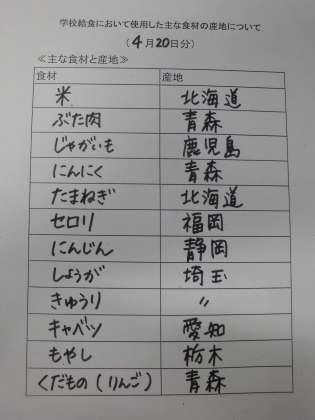 学校給食において使用した主な食材の産地について
（4月20日分）
≪主な食材と産地≫
食材 産地
米 北海道
ぶた肉 青森
じゃがいも 鹿児島
にんにく 青森
たまねぎ 北海道
セロリ 福岡
にんじん 静岡
しょうが 埼玉
きゅうり 〃
キャベツ 愛知
もやし 栃木
くだもの（りんご） 青森